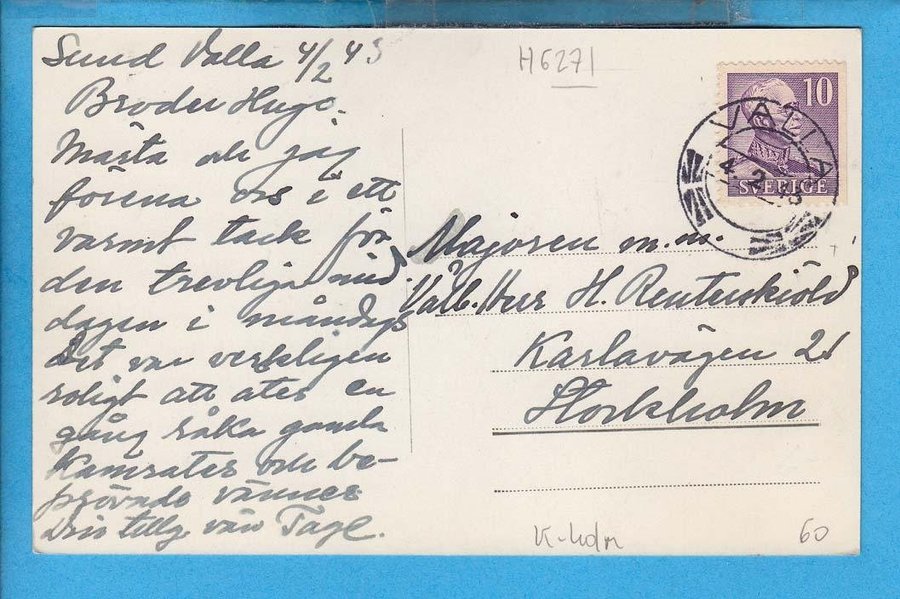 Sund Valla 4/2 43
Broder Hugo.
Märta och jag
förena oss i ett
varmt tack för
den trevliga mid
dagen i måndags
Det var verkligen
roligt att åter en
gång råka gamla
Kamrater och be-
prövade vänner
Din tillg. vän Tage.
H6271
10
SVERIGE
VALLA
4. 2
Majoren m.m.
Välb. Herr H. Reutersköld
Karlavägen 21
Stockholm
K-holm
60